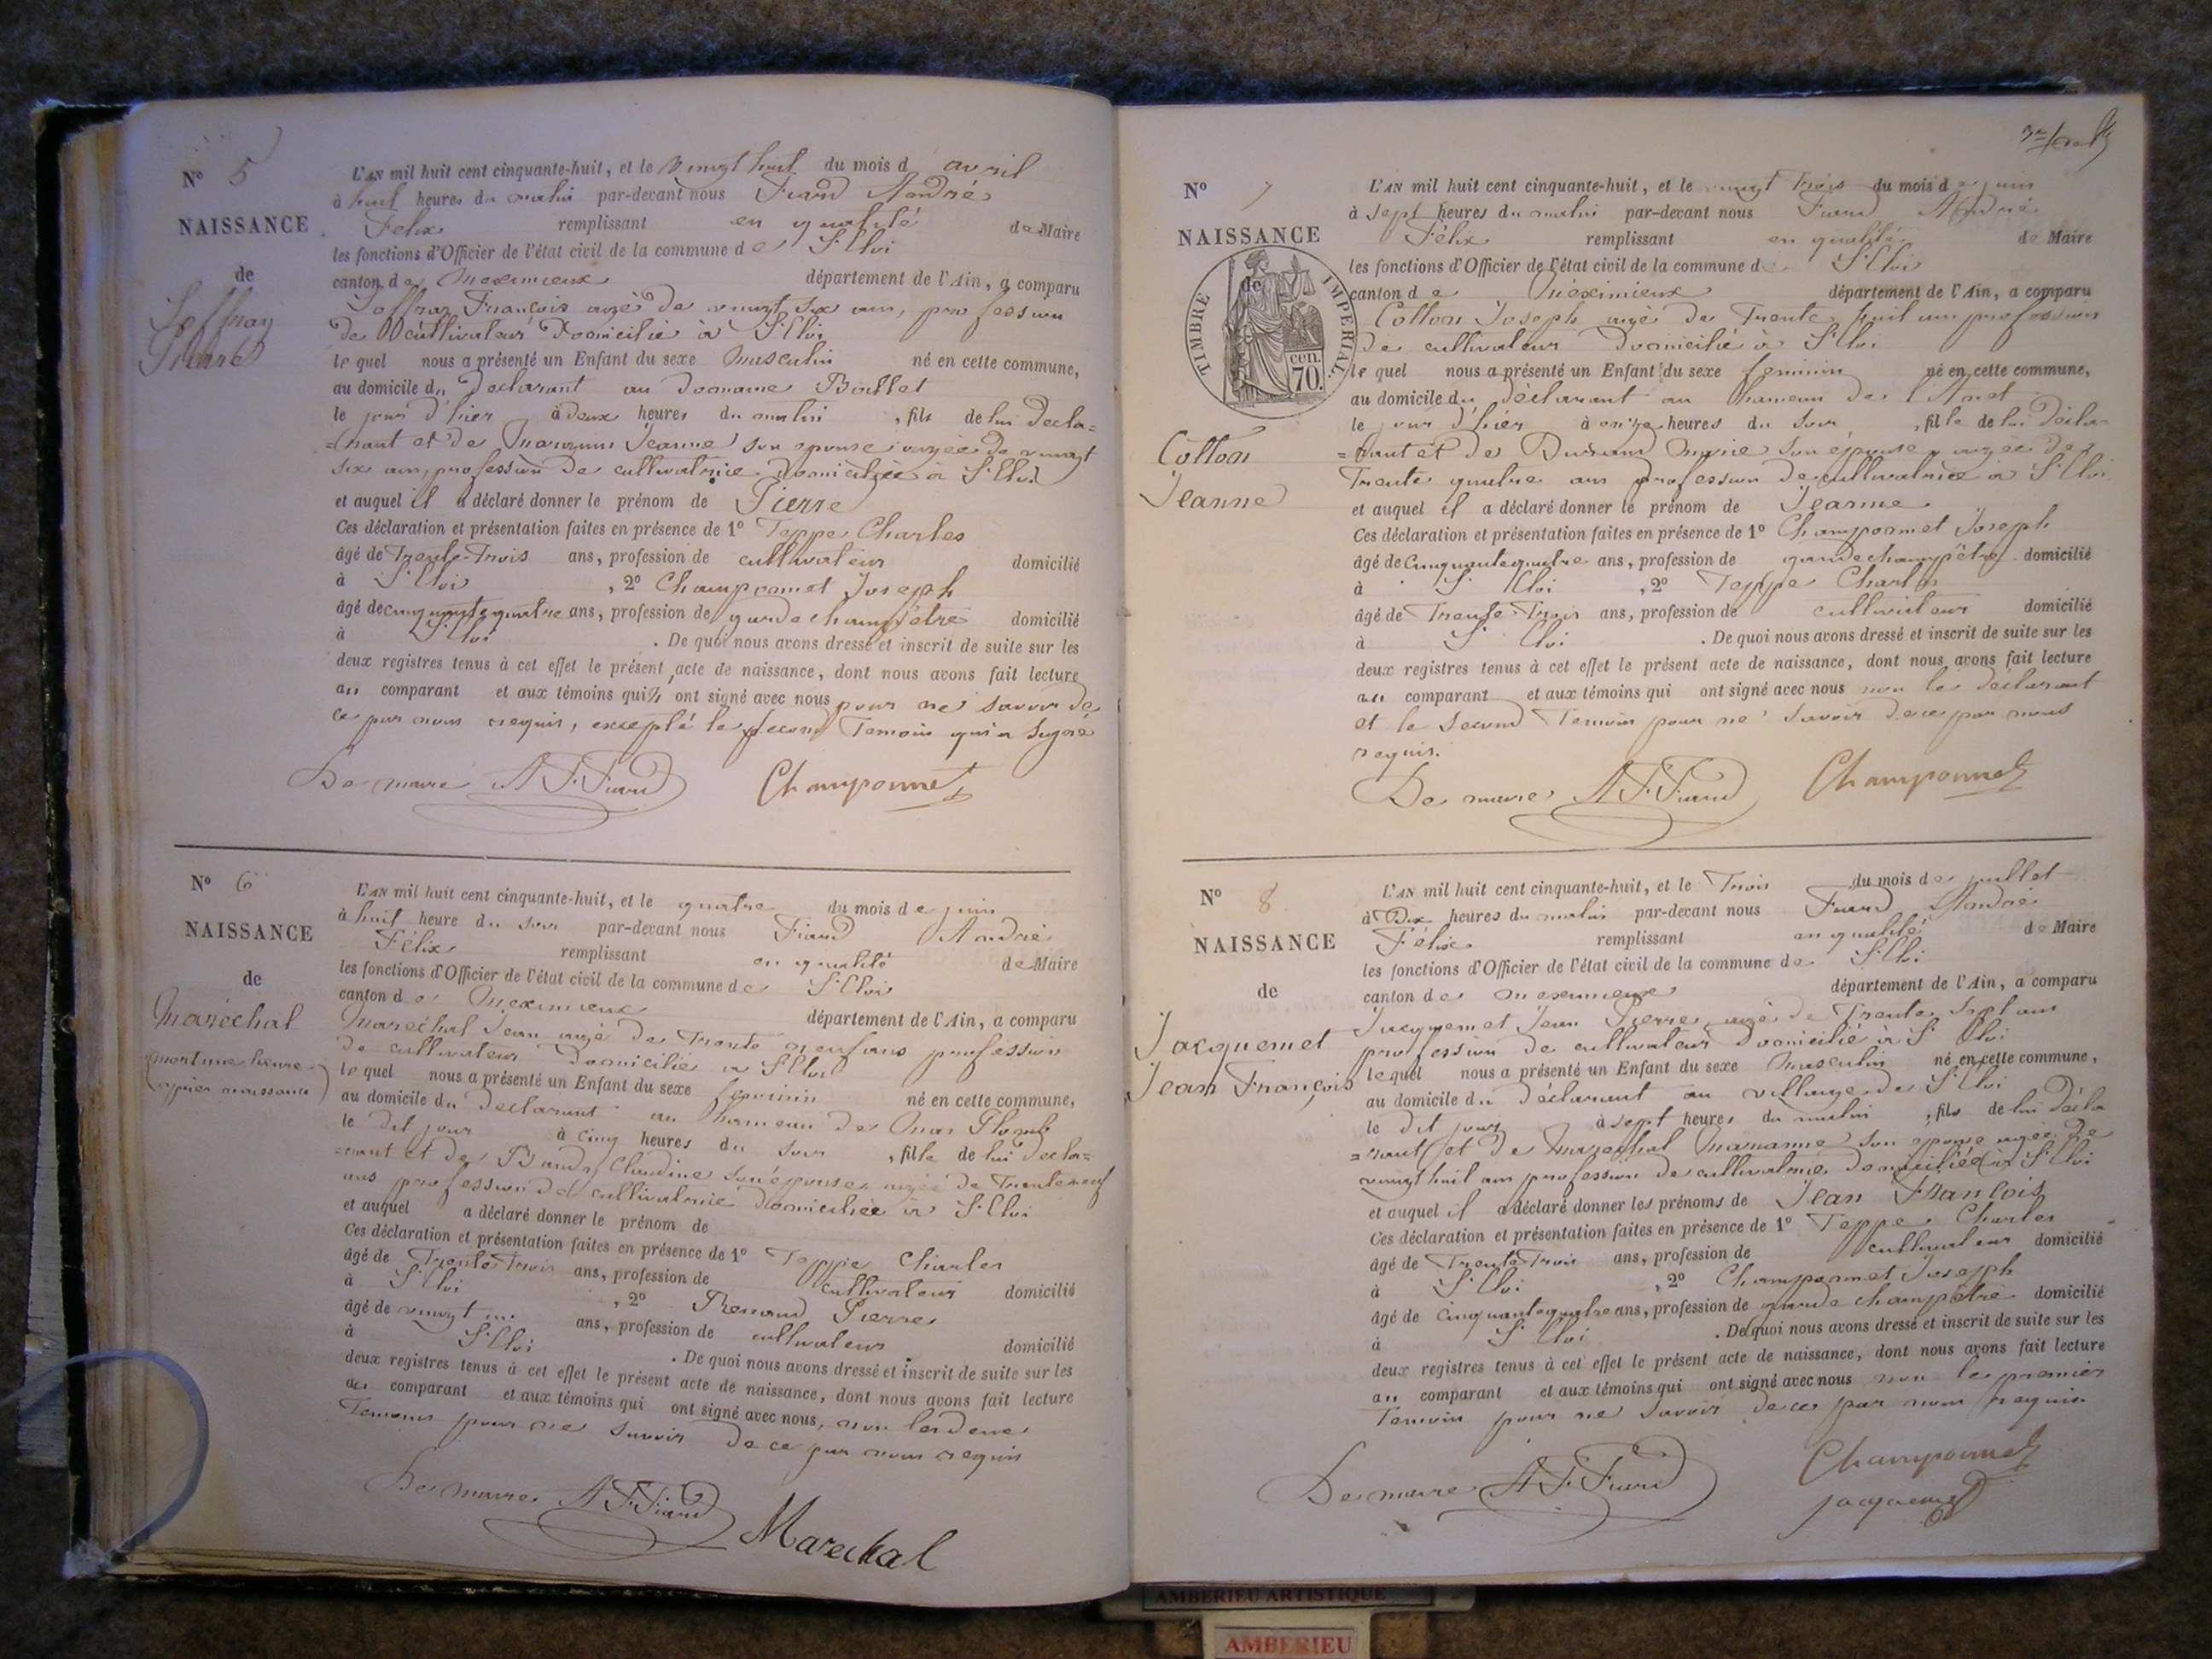 N° 5
NAISSANCE
de
Joffray
Pierre
L'AN mil huit cent cinquante-huit, et le vingt huit du mois d avril
à huit heures du matin par-devant nous Fiard André
Félix remplissant en qualité de Maire
les fonctions d'Officier de l'état civil de la commune de St Eloi
canton de Meximieux département de l'Ain, a comparu
Joffray François agé de vingt six ans, profession
de cultivateur domicilié à St Eloi
lequel nous a présenté un Enfant du sexe masculin né en cette commune,
au domicile du déclarant au domaine
le jour d'hier à deux heures du matin, fils de lui décla=
=rant et de Jeanne son épouse agée de vingt
six ans, profession de cultivatrice domiciliée à St Eloi
et auquel il a déclaré donner le prénom de Pierre
Ces déclaration et présentation faites en présence de 1° Teppe Charles
âgé de Trente-Trois ans, profession de cultivateur domicilié
à St Eloi, 2° Champromet Joseph
âgé de cinquante quatre ans, profession de garde champêtre domicilié
à St Eloi. De quoi nous avons dressé et inscrit de suite sur les
deux registres tenus à cet effet le présent acte de naissance, dont nous avons fait lecture
au comparant et aux témoins qui ont signé avec nous pour ne savoir de
ce par nous requis, excepté le second Temoin qui a signé
Le maire A F. Fiard Champonnet
N° 6
NAISSANCE
de
Maréchal
(mort une heure
après naissance)
L'AN mil huit cent cinquante-huit, et le quatre du mois de juin
à huit heure du soir par-devant nous Fiard André
Félix remplissant en qualité de Maire
les fonctions d'Officier de l'état civil de la commune de St Eloi
canton de Meximieux département de l'Ain, a comparu
Maréchal Jean agé de Trente neuf ans profession
de cultivateur domicilié à St Eloi
lequel nous a présenté un Enfant du sexe féminin né en cette commune,
au domicile du déclarant au hameau de Mas Plomb
le dit jour à cinq heures du soir, fille de lui décla=
=rant et de Claudine son épouse, agée de Trente neuf
ans profession de cultivatrice domiciliée à St Eloi
et auquel a déclaré donner le prénom de
Ces déclaration et présentation faites en présence de 1° Teppe Charles
âgé de Trente Trois ans, profession de cultivateur domicilié
à St Eloi, 2° Renaud Pierre
âgé de vingt ans, profession de cultivateur domicilié
à St Eloi. De quoi nous avons dressé et inscrit de suite sur les
deux registres tenus à cet effet le présent acte de naissance, dont nous avons fait lecture
au comparant et aux témoins qui ont signé avec nous, non les deux
Temoins pour ne savoir de ce par nous requis
Le maire A F. Fiard Marechal
N° 7
NAISSANCE
de
TIMBRE IMPERIAL
cen. 70.
Cotton
Jeanne
L'AN mil huit cent cinquante-huit, et le vingt Trois du mois de juin
à sept heures du matin par-devant nous Fiard André
Félix remplissant en qualité de Maire
les fonctions d'Officier de l'état civil de la commune de St Eloi
canton de Méximieux département de l'Ain, a comparu
Cotton Joseph agé de Trente huit ans profession
de cultivateur domicilié à St Eloi
lequel nous a présenté un Enfant du sexe feminin né en cette commune,
au domicile du déclarant au hameau de
le jour d'hier à onze heures du soir, fille de lui décla=
=rant et de Durand Marie son épouse, agée de
Trente quatre ans profession de cultivatrice à St Eloi
et auquel il a déclaré donner le prénom de Jeanne
Ces déclaration et présentation faites en présence de 1° Champromet Joseph
âgé de Cinquante quatre ans, profession de garde champêtre domicilié
à St Eloi, 2° Teppe Charles
âgé de Trente Trois ans, profession de cultivateur domicilié
à St Eloi. De quoi nous avons dressé et inscrit de suite sur les
deux registres tenus à cet effet le présent acte de naissance, dont nous avons fait lecture
au comparant et aux témoins qui ont signé avec nous non le déclarant
et le second Temoin pour ne savoir de ce par nous
requis.
Le maire A F. Fiard Champonnet
N° 8
NAISSANCE
de
Jacquemet
Jean François
L'AN mil huit cent cinquante-huit, et le Trois du mois de juillet
à Dix heures du matin par-devant nous Fiard André
Félix remplissant en qualité de Maire
les fonctions d'Officier de l'état civil de la commune de St Eloi
canton de Meximieux département de l'Ain, a comparu
Jacquemet Jean Pierre, agé de Trente sept ans
profession de cultivateur domicilié à St Eloi
lequel nous a présenté un Enfant du sexe masculin né en cette commune,
au domicile du déclarant au village de St Eloi
le dit jour à sept heures du matin, fils de lui décla
=rant et de Maréchal Marianne son épouse agée de
vingt huit ans profession de cultivatrice domiciliée à St Eloi
et auquel il a déclaré donner les prénoms de Jean François
Ces déclaration et présentation faites en présence de 1° Teppe Charles
âgé de Trente Trois ans, profession de cultivateur domicilié
à St Eloi, 2° Champromet Joseph
âgé de cinquante quatre ans, profession de garde champêtre domicilié
à St Eloi. De quoi nous avons dressé et inscrit de suite sur les
deux registres tenus à cet effet le présent acte de naissance, dont nous avons fait lecture
au comparant et aux témoins qui ont signé avec nous non le premier
Temoin pour ne savoir de ce par nous requis.
Le maire A F. Fiard Champonnet
jacquemet
AMBERIEU ARTISTIQUE
AMBERIEU